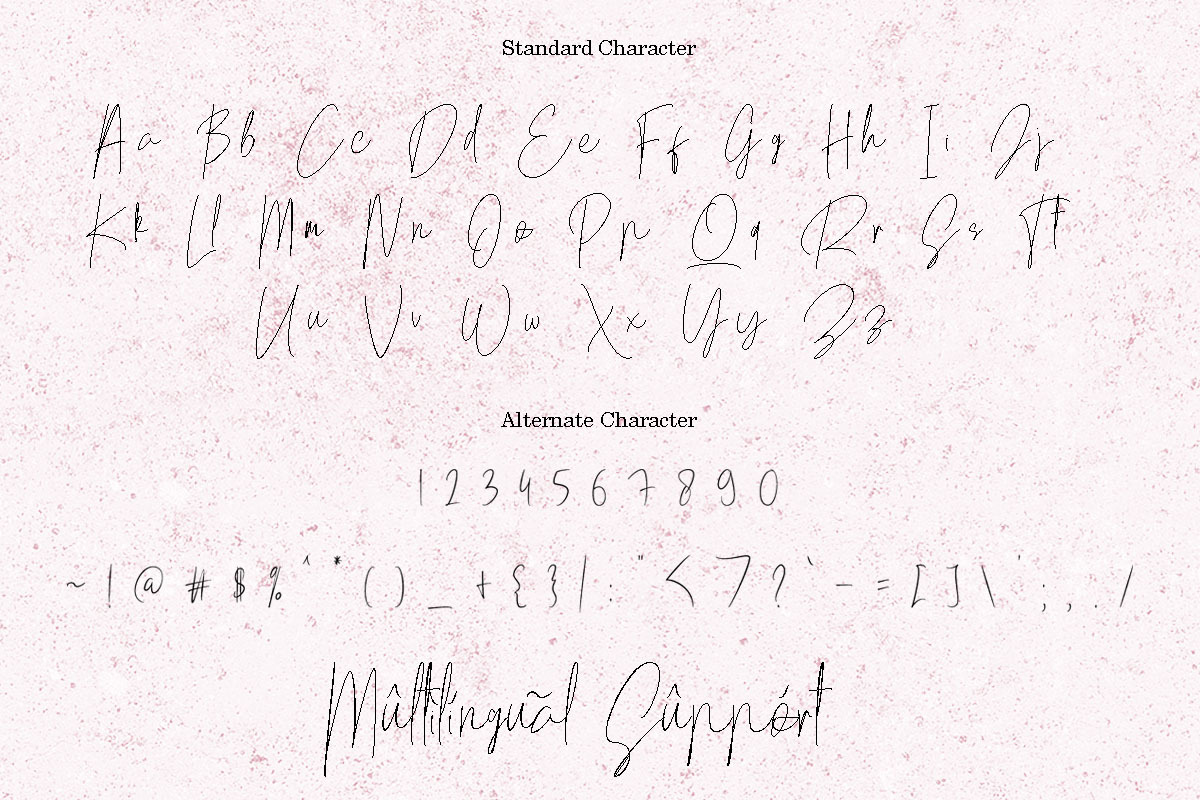 Standard Character
Aa Bb Cc Dd Ee Ff Gg Hh Ii Jj
Kk Ll Mm Nn Oo Pp Qq Rr Ss Tt
Uu Vv Ww Xx Yy Zz
Alternate Character
1 2 3 4 5 6 7 8 9 0
~ ! @ # $ % ^ * ( ) _ + { } | : " < > ? ` - = [ ] \ ' ; , . /
Mûltilíngüãl Sûppórt